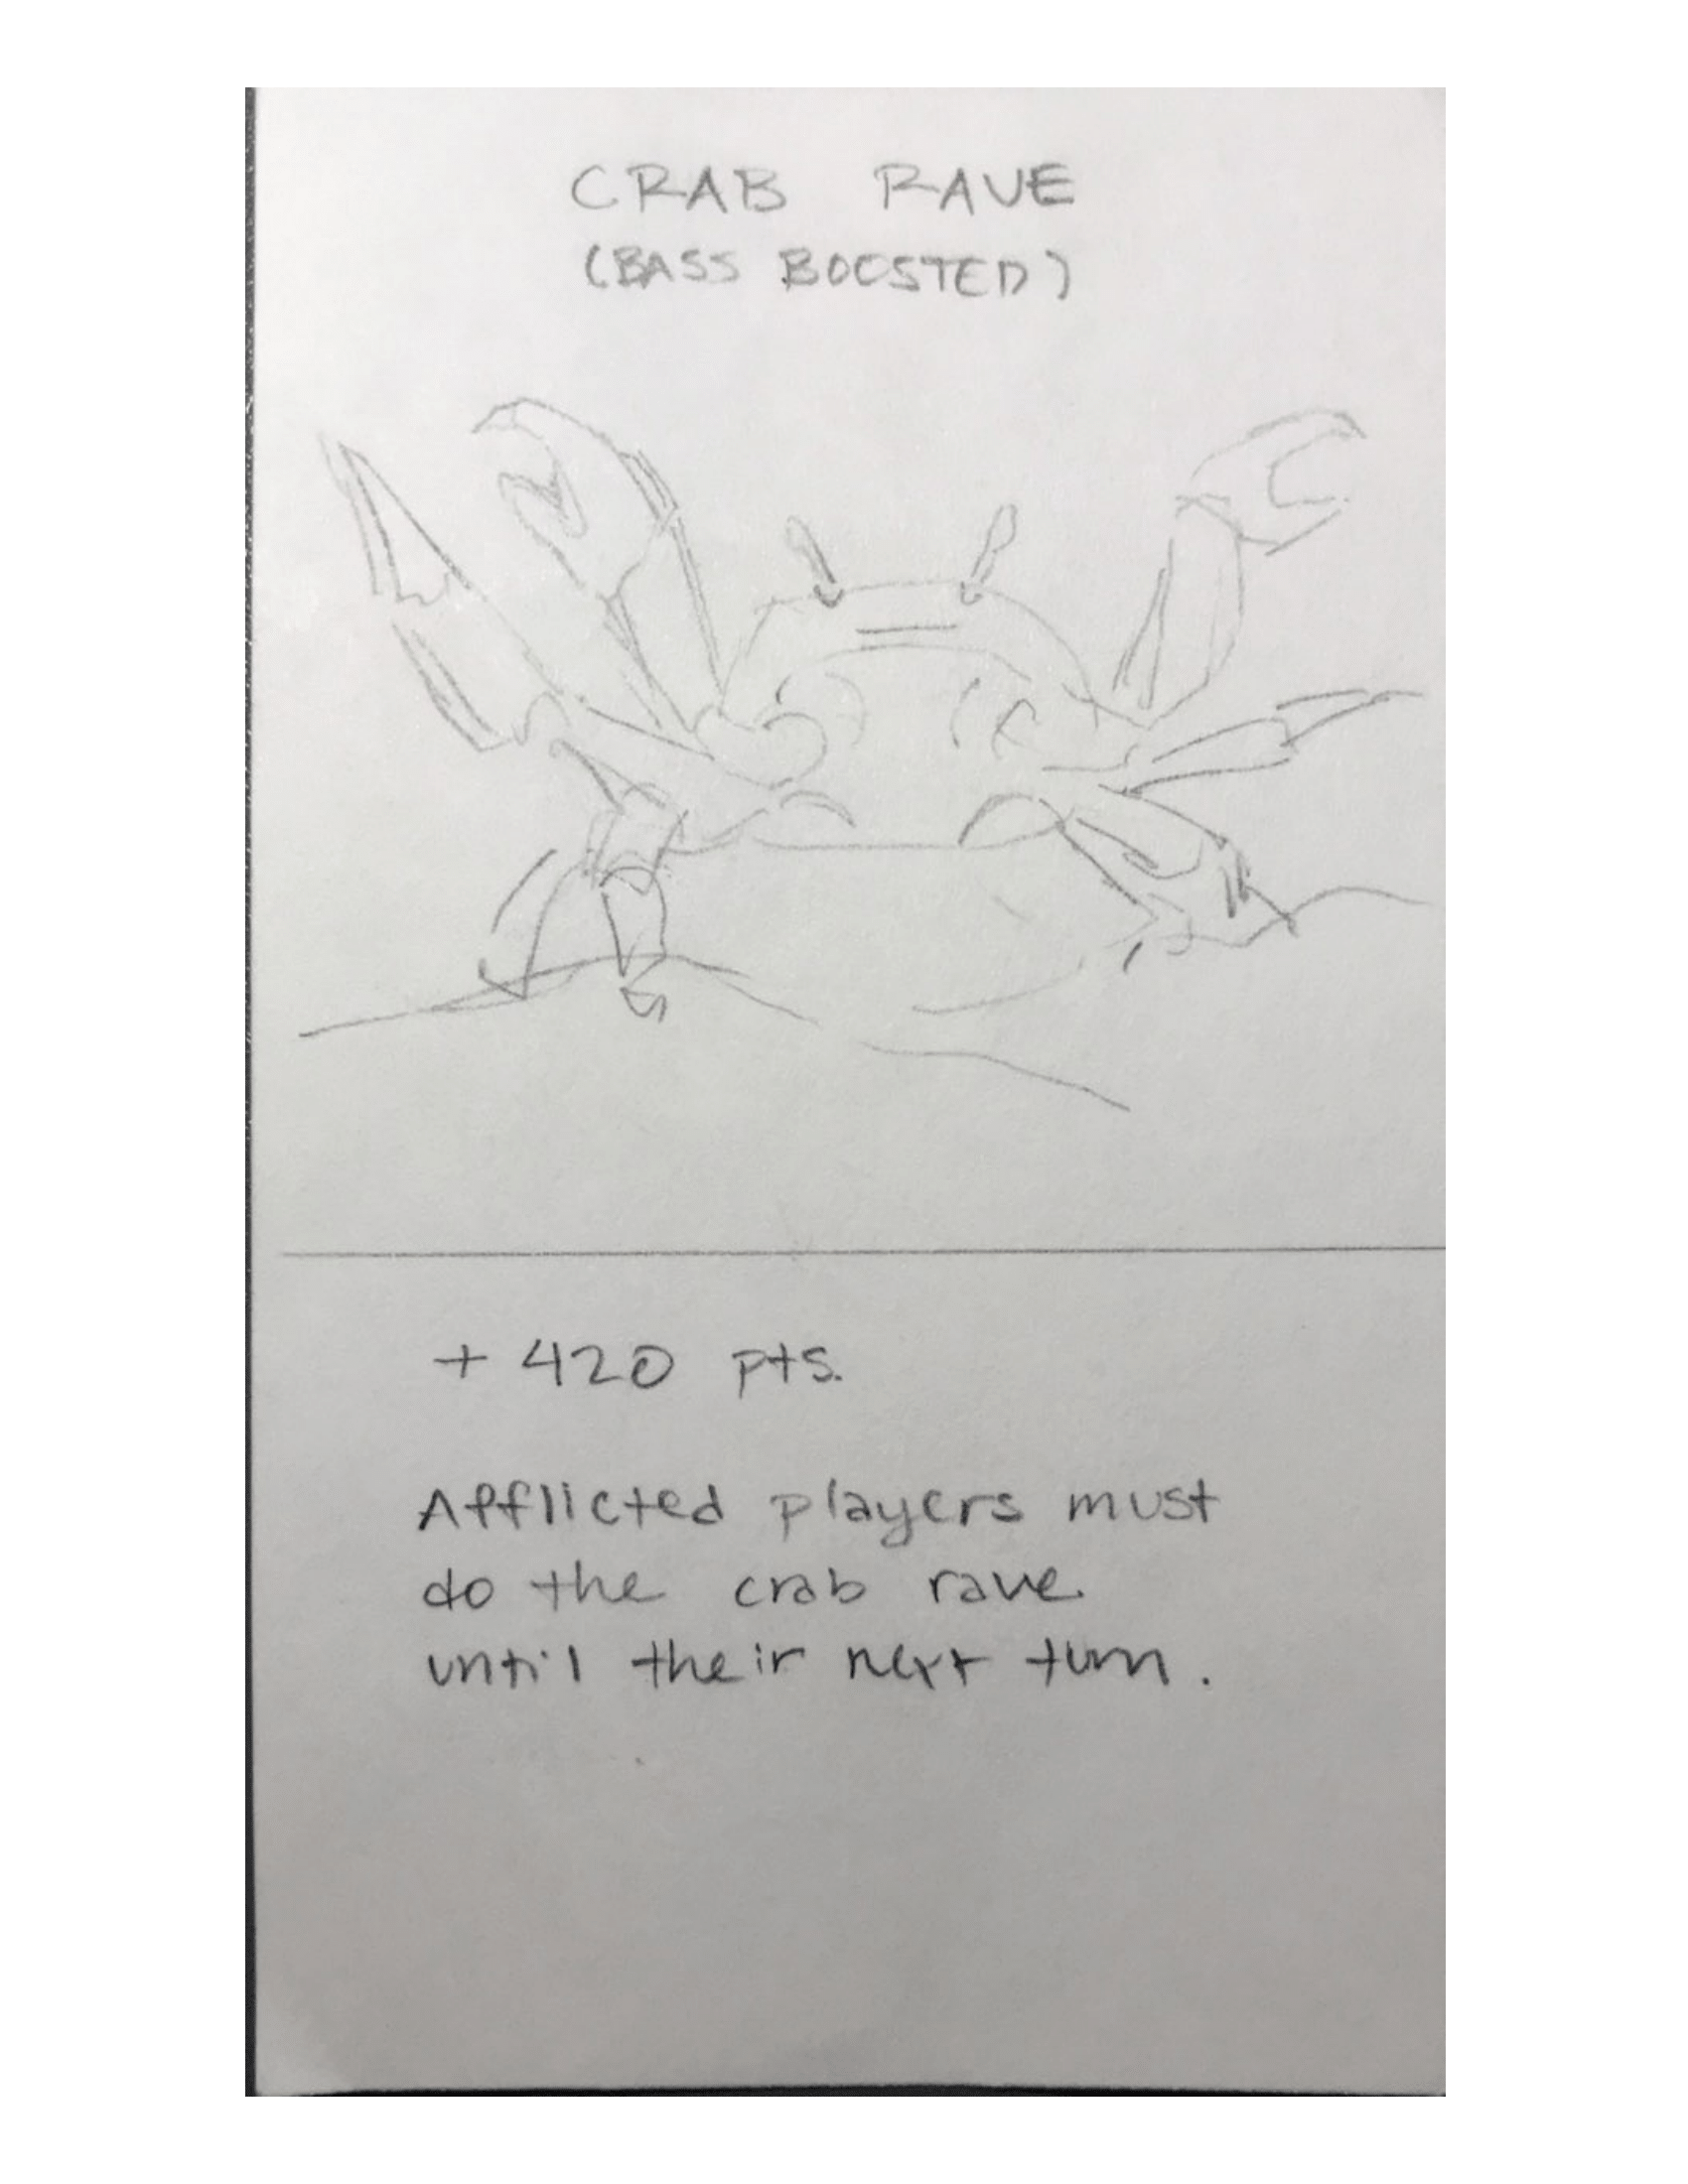 CRAB RAVE
(BASS BOOSTED)
+ 420 pts.
Afflicted players must
do the crab rave
until their next turn.